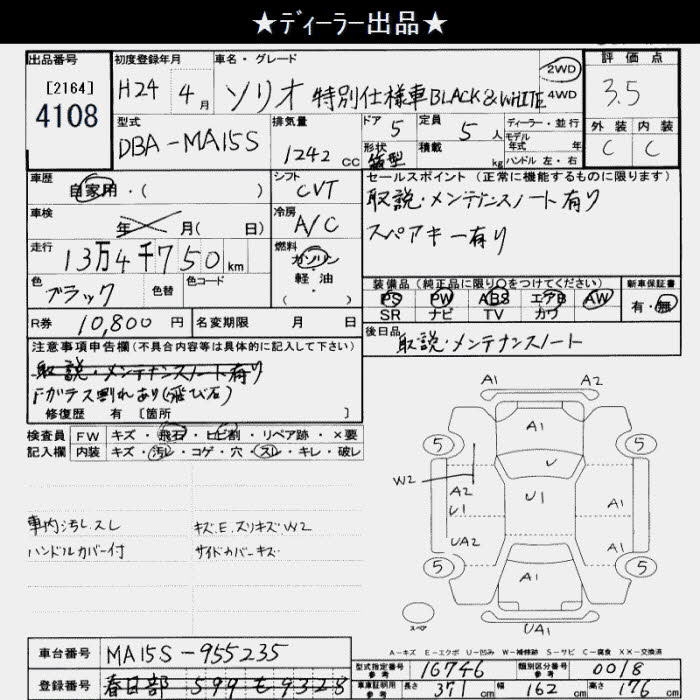 ★ディーラー出品★
出品番号
[2164]
4108
初度登録年月
H24年 4月
車名・グレード
ソリオ 特別仕様車BLACK&WHITE
2WD
4WD
評価点
3.5
外装 内装
C C
型式
DBA-MA15S
排気量
1242 cc
ドア 5
形状 箱型
定員 5人
積載 kg
ディーラー・並行
モデル
年式 年
ハンドル 左・右
車歴
自家用・( )
シフト
CVT
セールスポイント (正常に機能するものに限ります)
取説・メンテナンスノート有り
スペアキー有り
車検
年 月( 日)
冷房
A/C
走行
13万4千750km
燃料
ガソリン
軽・油
( )
色
ブラック
色替
色コード
装備品 (純正品に限り○をつけてください)
PS PW ABS エアB AW
SR ナビ TV カワ
新車保証書
有・無
R券 10,800円
名変期限 月 日
後日品
取説・メンテナンスノート
注意事項申告欄 (不具合内容等は具体的に記入して下さい)
取説・メンテナンスノート有り
Fガラス割れあり(飛び石)
修復歴 有 [箇所 ]
検査員
記入欄
FW キズ・飛石・ヒビ割・リペア跡・×要
内装 キズ・汚レ・コゲ・穴・スレ・キレ・破レ
車内汚レ.スレ
ハンドルカバー付
キズ.E.スリキズ.W2
サイドカバーキズ
A1 A2
A1
5 5
U
W2
A2
U1
U1
A1
UA2
A1
5 5
A1
スペア
UA1
A-キズ E-エクボ U-凹み W-補修跡 S-サビ C-腐食 XX-交換済
車台番号 MA15S-955235
登録番号 春日部 599 も 9328
型式指定番号
参考
16746
類別区分番号
参考
0018
車庫証明用
参考
長さ 371cm
幅 162cm
高さ 176cm